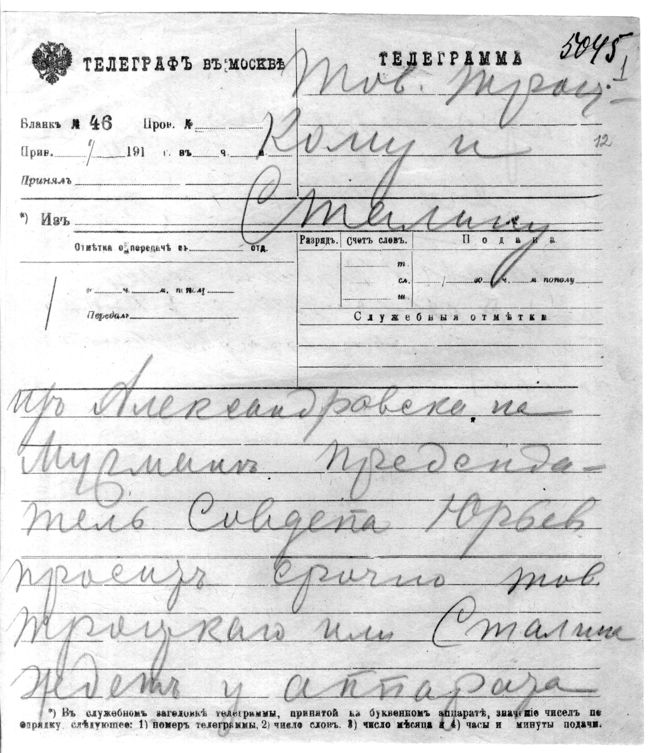 5045
1
ТЕЛЕГРАФЪ ВЪ МОСКВѢ
ТЕЛЕГРАММА
Тов. Троц-
Бланкъ № 46 Пров. №
Кому и
12
Прин. / 191 г. въ ч. м.
Принялъ
*) Изъ
Сталину
Отмѣтка о передачѣ въ отд.
Разрядъ. Счетъ словъ. Подана
т.
го ч. м. пополу
сл.
го ч. м пополу
ш.
Передалъ
Служебныя отмѣтки
изъ Александровска на
Мурманъ председа-
тель Совдепа Юрьев
проситъ срочно тов
Троцкаго или Сталина
Ждетъ у аппарата
*) Въ служебномъ заголовкѣ телеграммы, принятой на буквенномъ аппаратѣ, значеніе чиселъ по
порядку слѣдующее: 1) номеръ телеграммы, 2) число словъ, 3) число мѣсяца и 4) часы и минуты подачи.